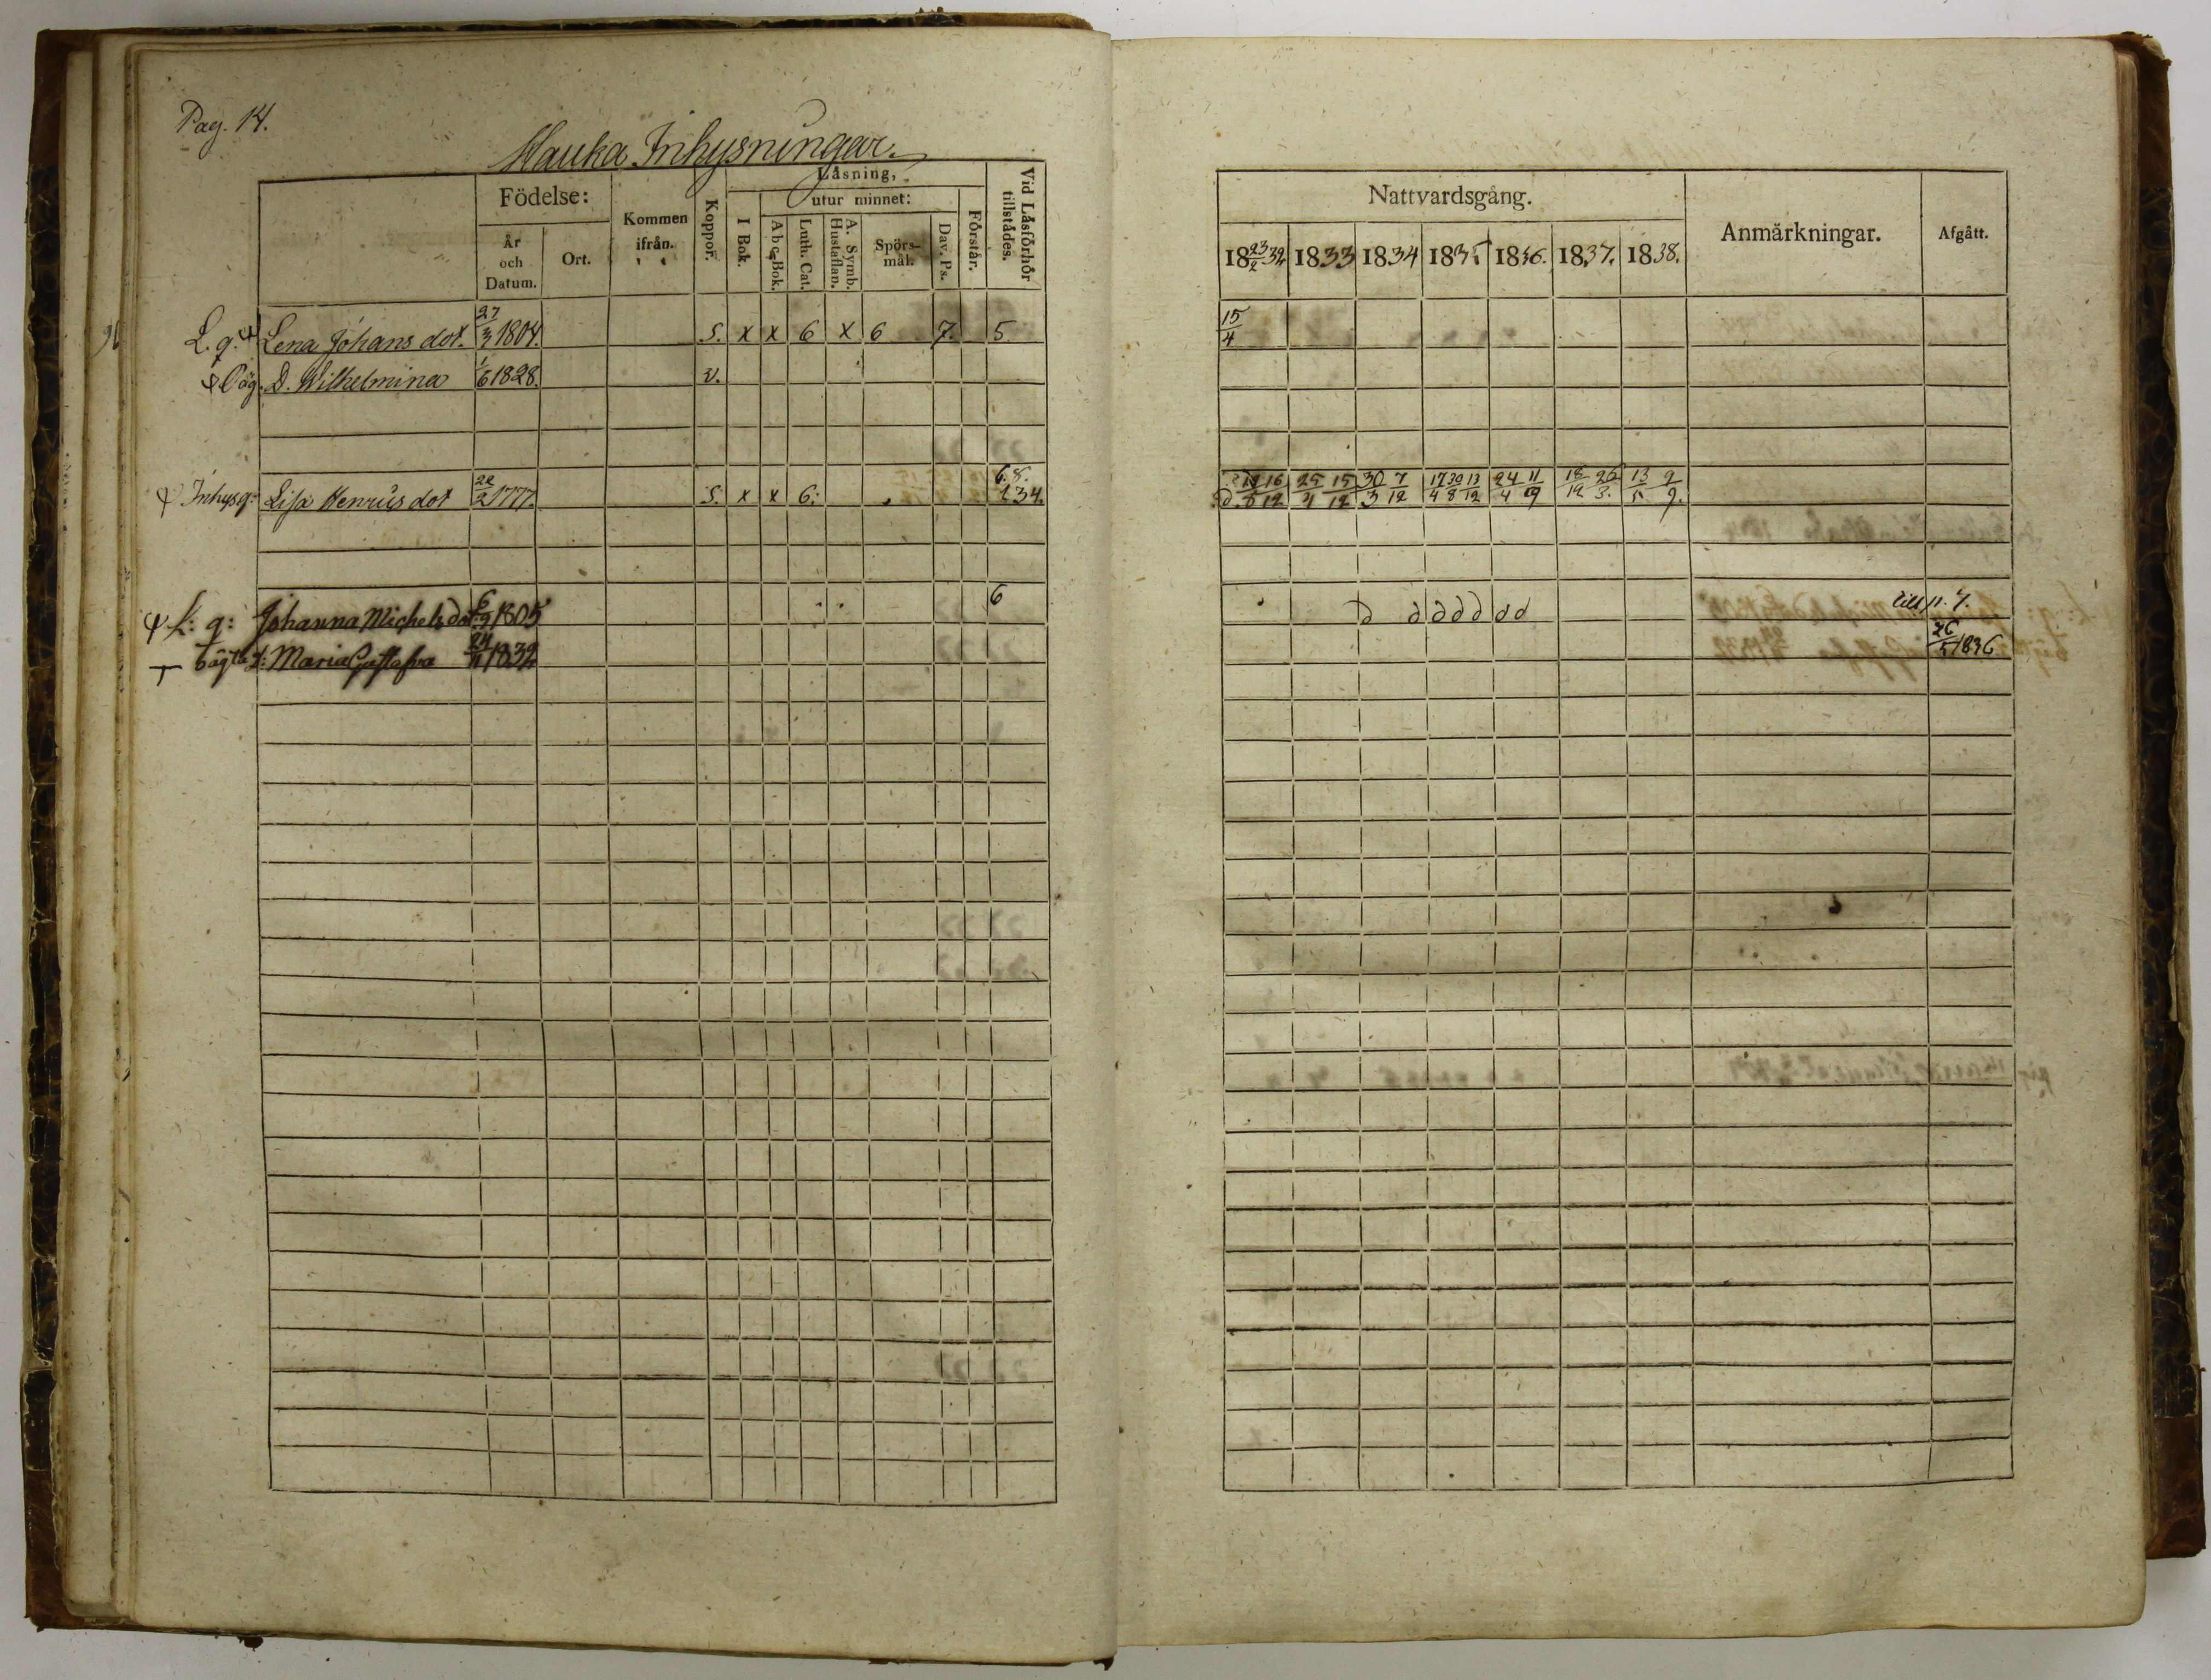 Pag. 14.
Hauka Inhysningar.
Födelse:
År och Datum.
Ort.
Kommen ifrån.
Koppor.
Läsning,
I Bok.
utur minnet:
Abc-Bok.
Luth. Cat.
A. Symb. Hustaflan.
Spörs-mål.
Dav. Ps.
Förstår.
Vid Läsförhör tillstädes.
L. q. Lena Johans dot. 27/3 1804. S. x x 6 x 6 7. 5.
Oäg. D. Wilhelmina 1/6 1828. v.
Inhys q: Lisa Henrics dot 22/2 1777. S. x x 6: 6.8. 1 3 4.
L: q: Johanna Michels dot 6/9 1805 6
oägta d: Maria Gustafva 24/11 1832
Nattvardsgång.
Anmärkningar.
Afgått.
18 32 1833 1834 1835 1836. 1837. 1838.
15/4
16/12 25/4 15/12 30/3 7/12 17/4 30/8 13/12 24/4 11/9 18/12 26/3. 13/5 9/9.
d d d d d d d till p. 7.
26/5 1836